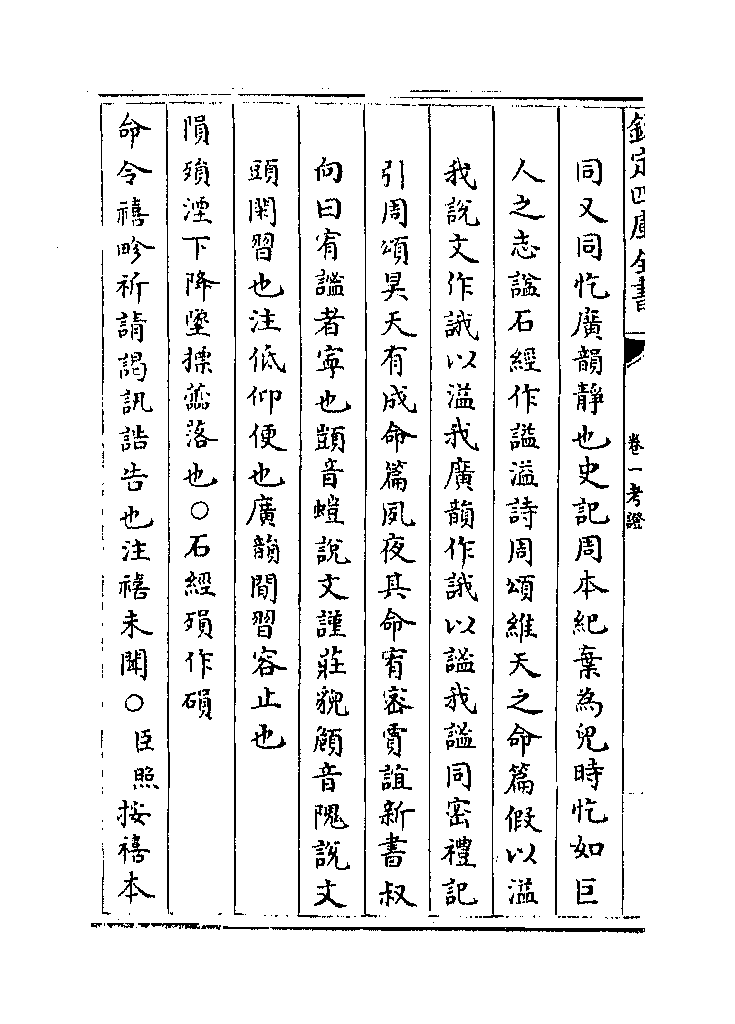 欽定四庫全書
卷一考證
同又同忔廣韻靜也史記周本紀棄為兒時忔如巨
人之志謚石經作謚溢詩周頌維天之命篇假以溢
我說文作誐以溢我廣韻作誐以謐我謐同密禮記
引周頌昊天有成命篇夙夜其命宥密賈誼新書叔
向曰宥謐者寧也顗音螘說文謹莊貌頠音隗說文
頭閑習也注低仰便也廣韻閒習容止也
隕殞湮下降墜摽蘦落也○石經殞作磒
命令禧畛祈請謁訊誥告也注禧未聞○臣照按禧本